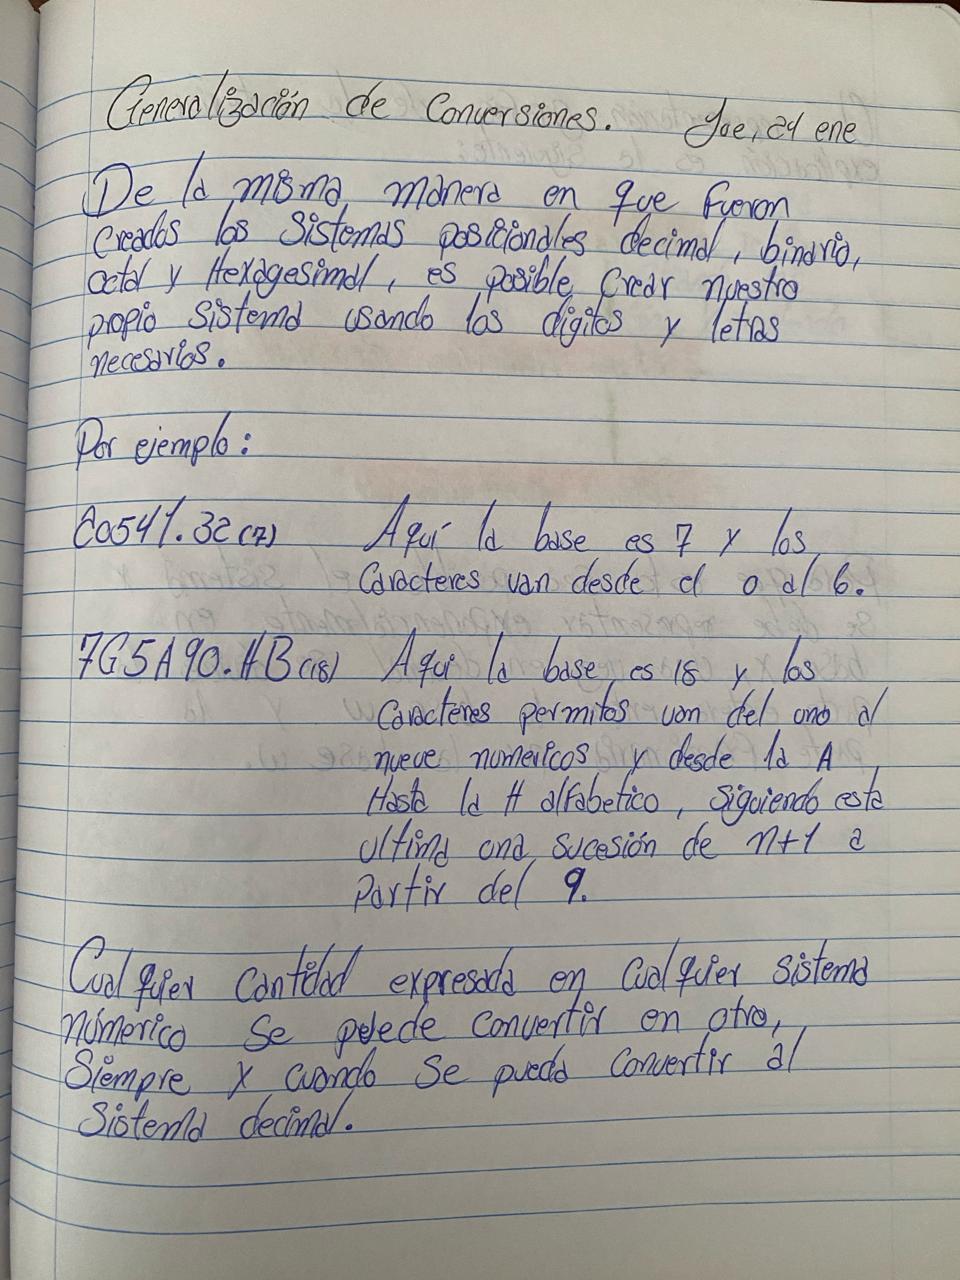 Generalización de Conversiones. Jue, 24 ene
De la misma manera en que fueron
creados los Sistemas posicionales decimal, binario,
octal y Hexagesimal, es posible Crear nuestro
propio Sistema usando los dígitos y letras
necesarios.
Por ejemplo:
60541.32 (7) Aquí la base es 7 y los
Caracteres van desde el 0 al 6.
7G5A90.HB (18) Aqui la base es 18 y los
Caracteres permitos van del uno al
nueve númericos y desde la A
Hasta la H alfabetico, Siguiendo esta
ultima una sucesión de n+1 a
Partir del 9.
Cualquier Cantidad expresada en Cualquier sistema
númerico Se puede Convertir en otro,
Siempre y cuando Se pueda Convertir al
Sistema decimal.